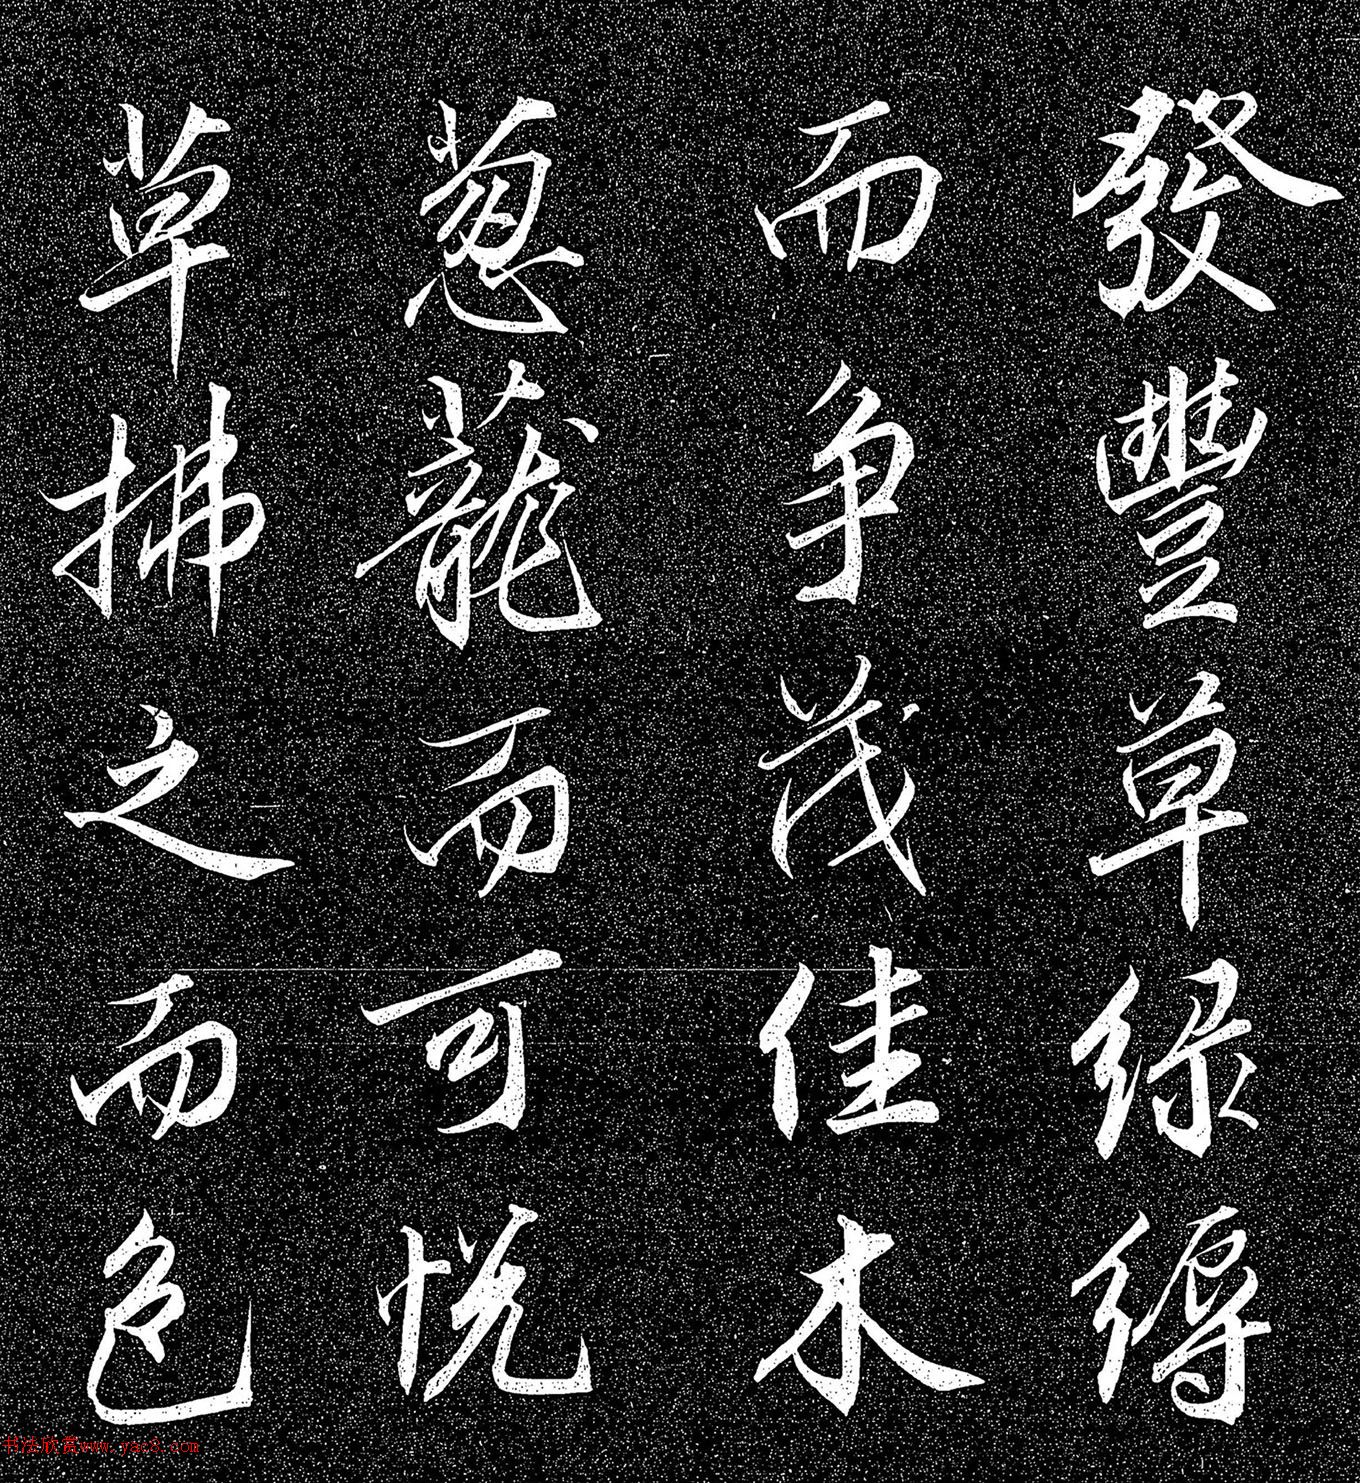 發豐草綠縟
而争茂佳木
葱蘢而可悅
草拂之而色
书法欣赏www.yac8.com